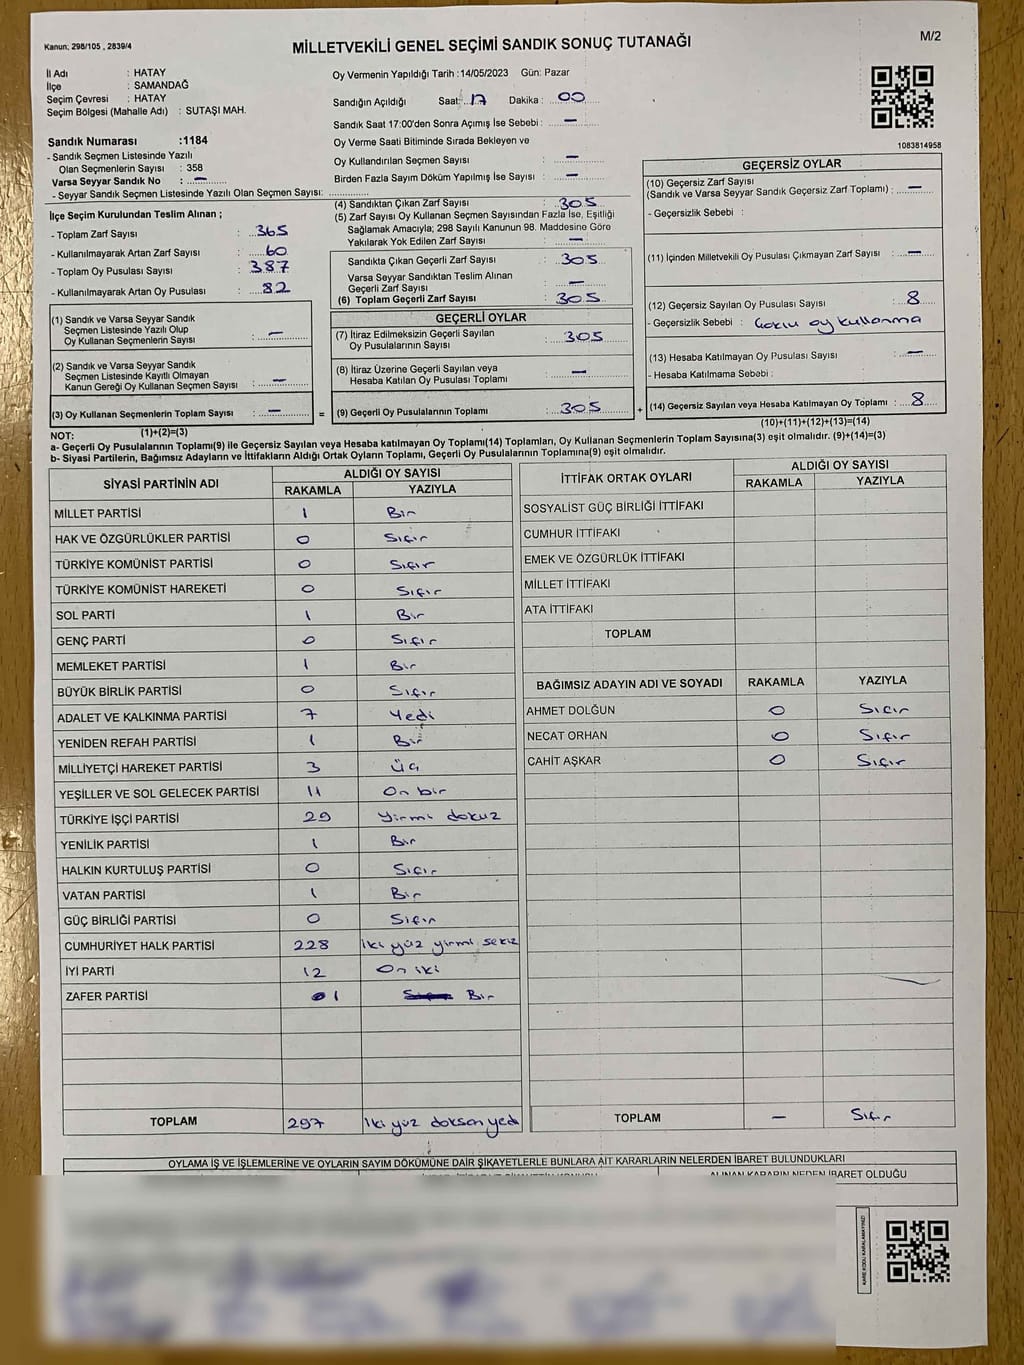 Kanun; 298/105 , 2839/4
MİLLETVEKİLİ GENEL SEÇİMİ SANDIK SONUÇ TUTANAĞI
M/2
İl Adı : HATAY
İlçe : SAMANDAĞ
Seçim Çevresi : HATAY
Seçim Bölgesi (Mahalle Adı) : SUTAŞI MAH.
Sandık Numarası :1184
- Sandık Seçmen Listesinde Yazılı
Olan Seçmenlerin Sayısı : 358
Varsa Seyyar Sandık No : —
- Seyyar Sandık Seçmen Listesinde Yazılı Olan Seçmen Sayısı:
Oy Vermenin Yapıldığı Tarih :14/05/2023 Gün: Pazar
Sandığın Açıldığı Saat: 17 Dakika : 00
Sandık Saat 17:00'den Sonra Açımış İse Sebebi : —
Oy Verme Saati Bitiminde Sırada Bekleyen ve
Oy Kullandırılan Seçmen Sayısı : —
Birden Fazla Sayım Döküm Yapılmış İse Sayısı : —
1083814958
İlçe Seçim Kurulundan Teslim Alınan ;
- Toplam Zarf Sayısı : 365
- Kullanılmayarak Artan Zarf Sayısı : 60
- Toplam Oy Pusulası Sayısı : 387
- Kullanılmayarak Artan Oy Pusulası : 82
(1) Sandık ve Varsa Seyyar Sandık
Seçmen Listesinde Yazılı Olup
Oy Kullanan Seçmenlerin Sayısı : —
(2) Sandık ve Varsa Seyyar Sandık
Seçmen Listesinde Kayıtlı Olmayan
Kanun Gereği Oy Kullanan Seçmen Sayısı : —
(3) Oy Kullanan Seçmenlerin Toplam Sayısı : —
(1)+(2)=(3)
(4) Sandıktan Çıkan Zarf Sayısı : 305
(5) Zarf Sayısı Oy Kullanan Seçmen Sayısından Fazla İse, Eşitliği
Sağlamak Amacıyla; 298 Sayılı Kanunun 98. Maddesine Göre
Yakılarak Yok Edilen Zarf Sayısı : —
Sandıkta Çıkan Geçerli Zarf Sayısı : 305
Varsa Seyyar Sandıktan Teslim Alınan
Geçerli Zarf Sayısı : —
(6) Toplam Geçerli Zarf Sayısı : 305
GEÇERLİ OYLAR
(7) İtiraz Edilmeksizin Geçerli Sayılan
Oy Pusulalarının Sayısı : 305
(8) İtiraz Üzerine Geçerli Sayılan veya
Hesaba Katılan Oy Pusulası Toplamı : —
= (9) Geçerli Oy Pusulalarının Toplamı : 305 +
GEÇERSİZ OYLAR
(10) Geçersiz Zarf Sayısı
(Sandık ve Varsa Seyyar Sandık Geçersiz Zarf Toplamı) : —
- Geçersizlik Sebebi :
(11) İçinden Milletvekili Oy Pusulası Çıkmayan Zarf Sayısı : —
(12) Geçersiz Sayılan Oy Pusulası Sayısı : 8
- Geçersizlik Sebebi : Çoklu oy kullanma
(13) Hesaba Katılmayan Oy Pusulası Sayısı : —
- Hesaba Katılmama Sebebi :
(14) Geçersiz Sayılan veya Hesaba Katılmayan Oy Toplamı : 8
(10)+(11)+(12)+(13)=(14)
NOT:
a- Geçerli Oy Pusulalarının Toplamı(9) ile Geçersiz Sayılan veya Hesaba katılmayan Oy Toplamı(14) Toplamları, Oy Kullanan Seçmenlerin Toplam Sayısına(3) eşit olmalıdır. (9)+(14)=(3)
b- Siyasi Partilerin, Bağımsız Adayların ve İttifakların Aldığı Ortak Oyların Toplamı, Geçerli Oy Pusulalarının Toplamına(9) eşit olmalıdır.
SİYASİ PARTİNİN ADI ALDIĞI OY SAYISI
RAKAMLA YAZIYLA
MİLLET PARTİSİ 1 Bir
HAK VE ÖZGÜRLÜKLER PARTİSİ 0 Sıfır
TÜRKİYE KOMÜNİST PARTİSİ 0 Sıfır
TÜRKİYE KOMÜNİST HAREKETİ 0 Sıfır
SOL PARTİ 1 Bir
GENÇ PARTİ 0 Sıfır
MEMLEKET PARTİSİ 1 Bir
BÜYÜK BİRLİK PARTİSİ 0 Sıfır
ADALET VE KALKINMA PARTİSİ 7 Yedi
YENİDEN REFAH PARTİSİ 1 Bir
MİLLİYETÇİ HAREKET PARTİSİ 3 Üç
YEŞİLLER VE SOL GELECEK PARTİSİ 11 On bir
TÜRKİYE İŞÇİ PARTİSİ 29 Yirmi dokuz
YENİLİK PARTİSİ 1 Bir
HALKIN KURTULUŞ PARTİSİ 0 Sıfır
VATAN PARTİSİ 1 Bir
GÜÇ BİRLİĞİ PARTİSİ 0 Sıfır
CUMHURİYET HALK PARTİSİ 228 İki yüz yirmi sekiz
İYİ PARTİ 12 On iki
ZAFER PARTİSİ 1 Bir
TOPLAM 297 İki yüz doksan yedi
İTTİFAK ORTAK OYLARI ALDIĞI OY SAYISI
RAKAMLA YAZIYLA
SOSYALİST GÜÇ BİRLİĞİ İTTİFAKI
CUMHUR İTTİFAKI
EMEK VE ÖZGÜRLÜK İTTİFAKI
MİLLET İTTİFAKI
ATA İTTİFAKI
TOPLAM
BAĞIMSIZ ADAYIN ADI VE SOYADI RAKAMLA YAZIYLA
AHMET DOLĞUN 0 Sıfır
NECAT ORHAN 0 Sıfır
CAHİT AŞKAR 0 Sıfır
TOPLAM — Sıfır
OYLAMA İŞ VE İŞLEMLERİNE VE OYLARIN SAYIM DÖKÜMÜNE DAİR ŞİKAYETLERLE BUNLARA AİT KARARLARIN NELERDEN İBARET BULUNDUKLARI
ALINAN KARARIN NEDEN İBARET OLDUĞU
KARE KODU KARALAMAYINIZ!